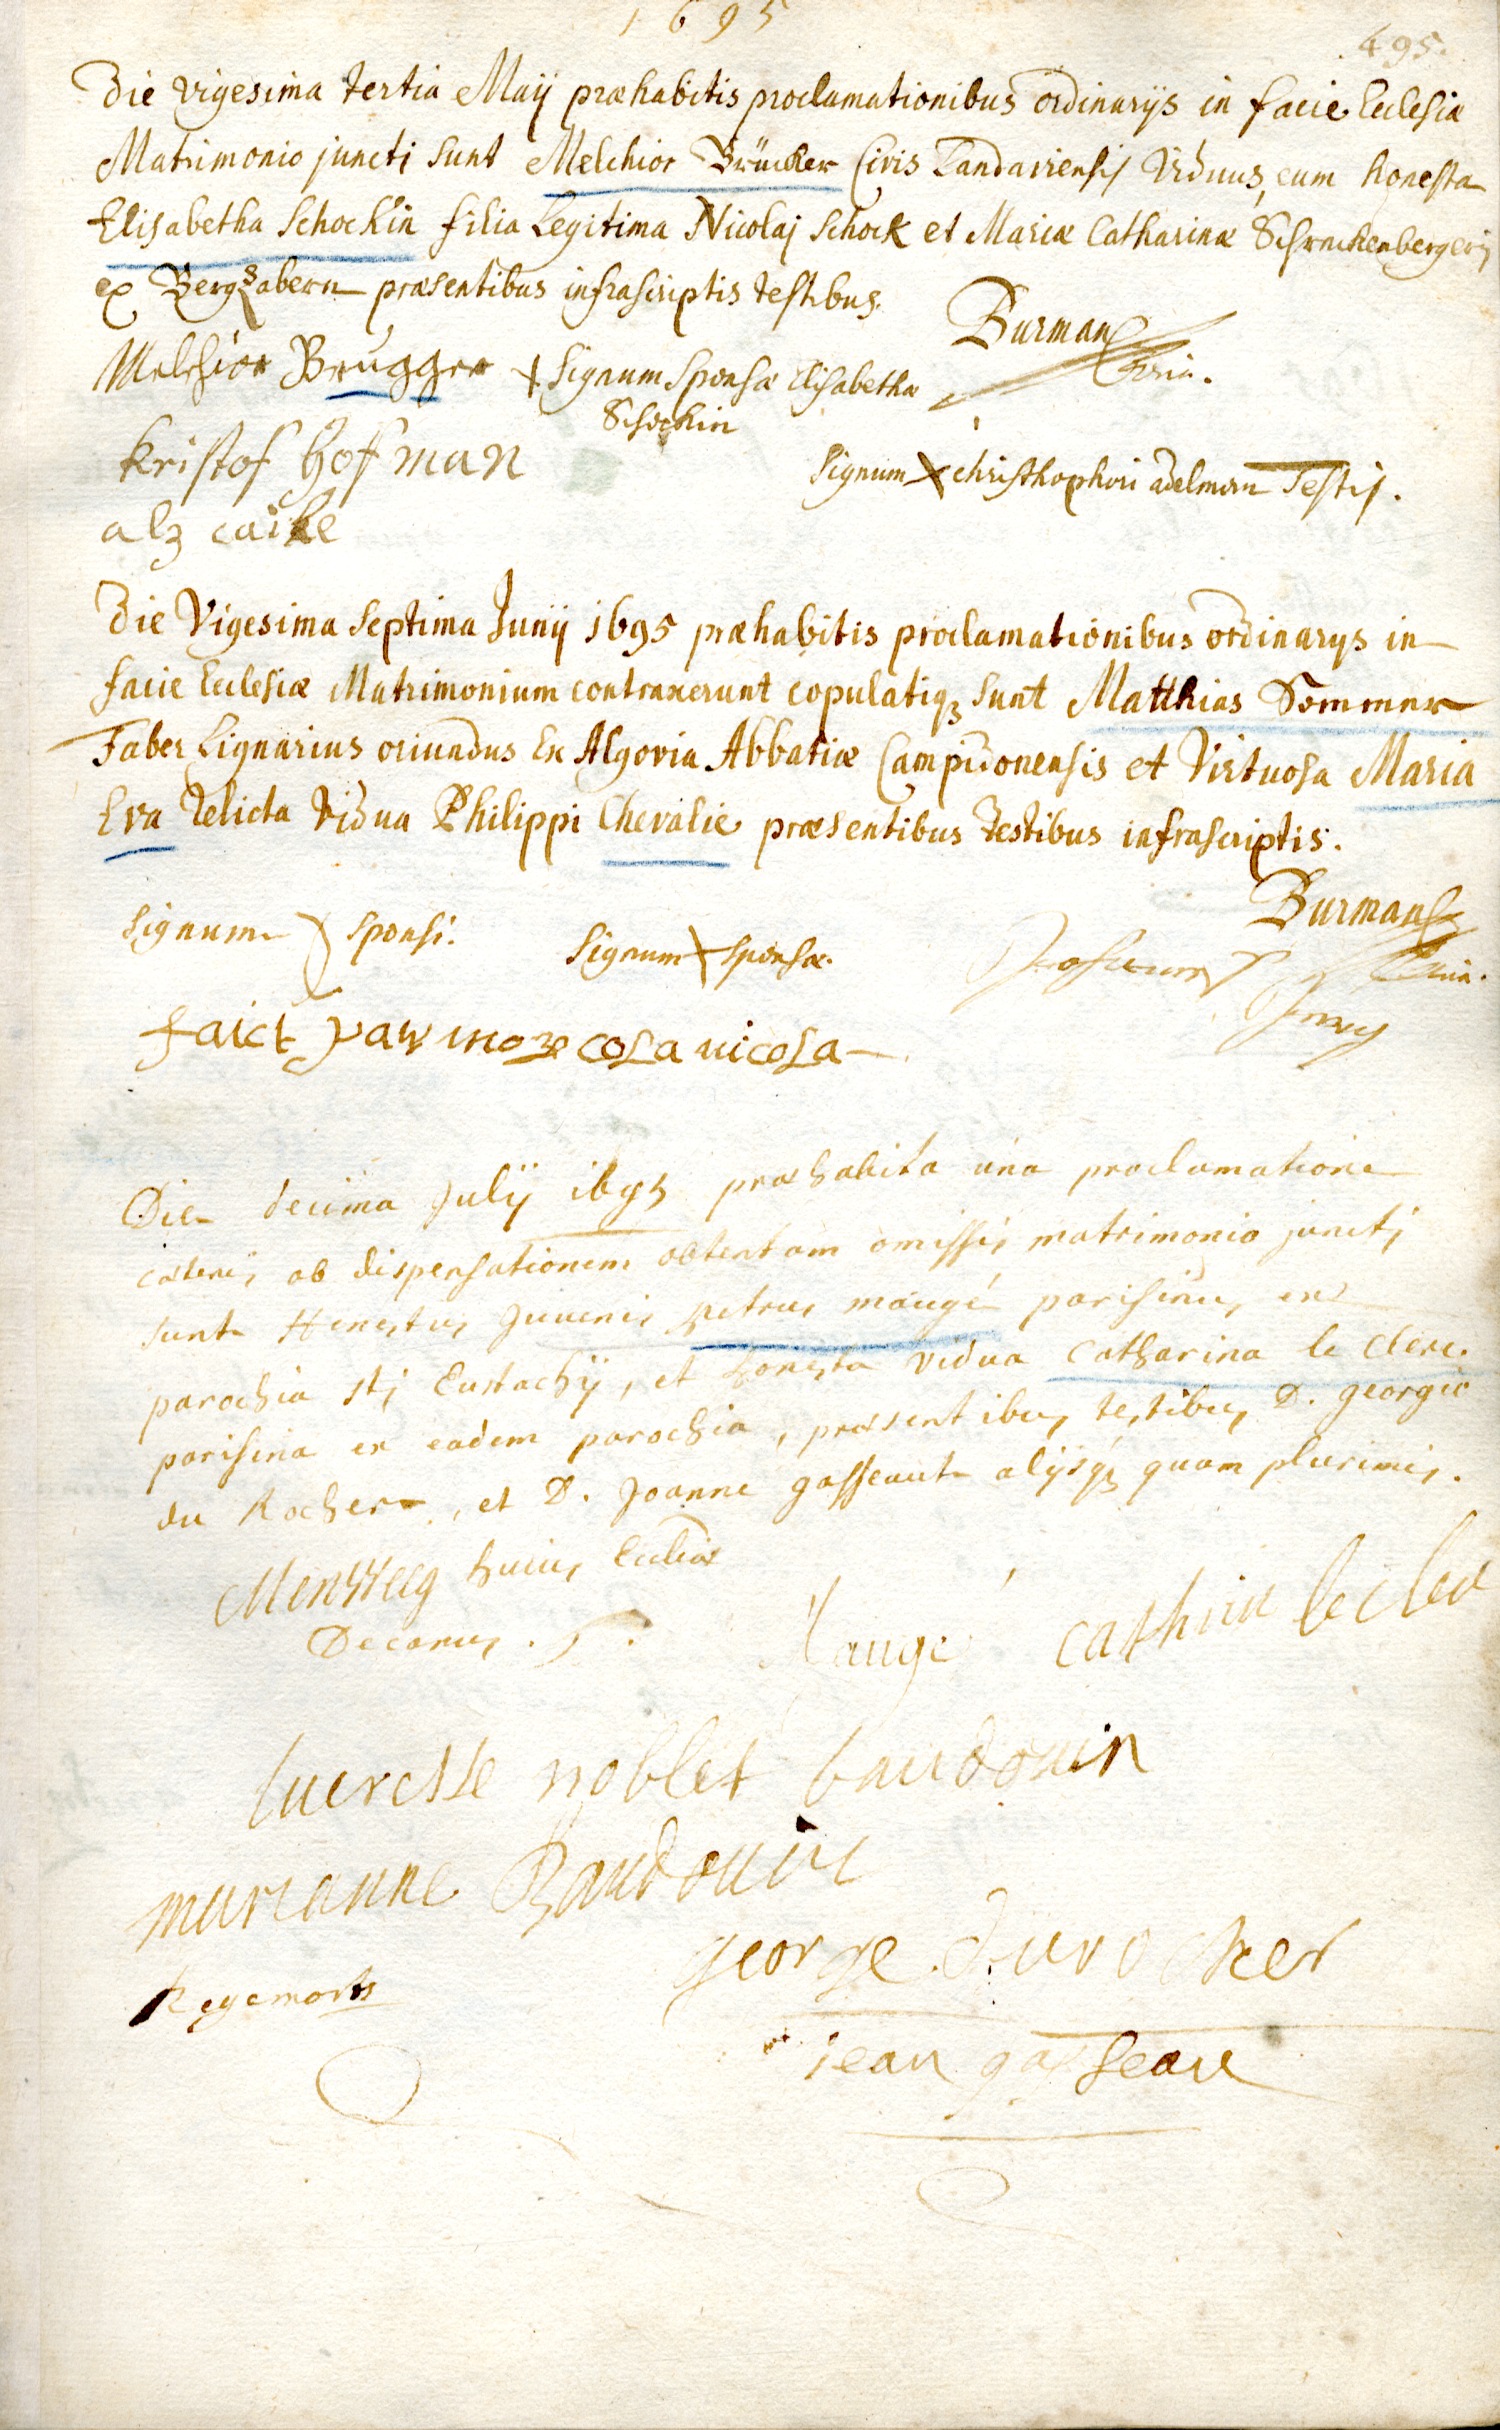 1695
495.
Die vigesima tertia Maij præhabitis proclamationibus ordinarijs in facie Ecclesiæ
Matrimonio juncti sunt Melchior Brücker Civis Landaviensis Viduus, cum honesta
Elisabetha Schockin filia Legitima Nicolaj Schock et Mariæ Catharinæ
ex Bergzabern præsentibus infrascriptis testibus.
Burman
Melchior Brugger + Signum Sponsæ Elisabetha
Schockin
Kristof hofman
Signum X christhophori adelman Testis.
alz
Die Vigesima Septima Junij 1695 præhabitis proclamationibus ordinarys in
facie Ecclesiæ Matrimonium contraxerunt copulatiq; sunt Matthias Sommer
Faber Lignarius oriundus Ex Algovia Abbatiæ Campidonensis et Virtuosa Maria
Eva relicta vidua Philippi Chevalie præsentibus testibus infrascriptis.
Burman
Signum sponsi.
Signum + sponsæ.
faict par cola nicola
Die decima Julij 1695 præhabita una proclamatione
cæteris ob dispensationem obtentam omissis matrimonio juncti
sunt Honestus Juvenis petrus maugé parisinus ex
parochia sti Eustachij, et honesta vidua Catharina le Clerc.
parisina ex eadem parochia, præsentibus testibus D. georgio
du Rocher, et D. Joanne gasseaut alijsq; quam plurimis.
Menweeg huius Eccliæ
Decanus.
Maugé
lucresse noblet baudouin
marianne Baudouin
george durocher
Regemorts
jean gasseau